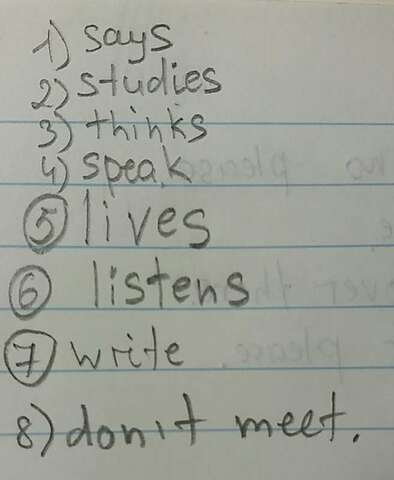 1) says
2) studies
3) thinks
4) speak
5 lives
6 listens
7 write
8) don't meet.